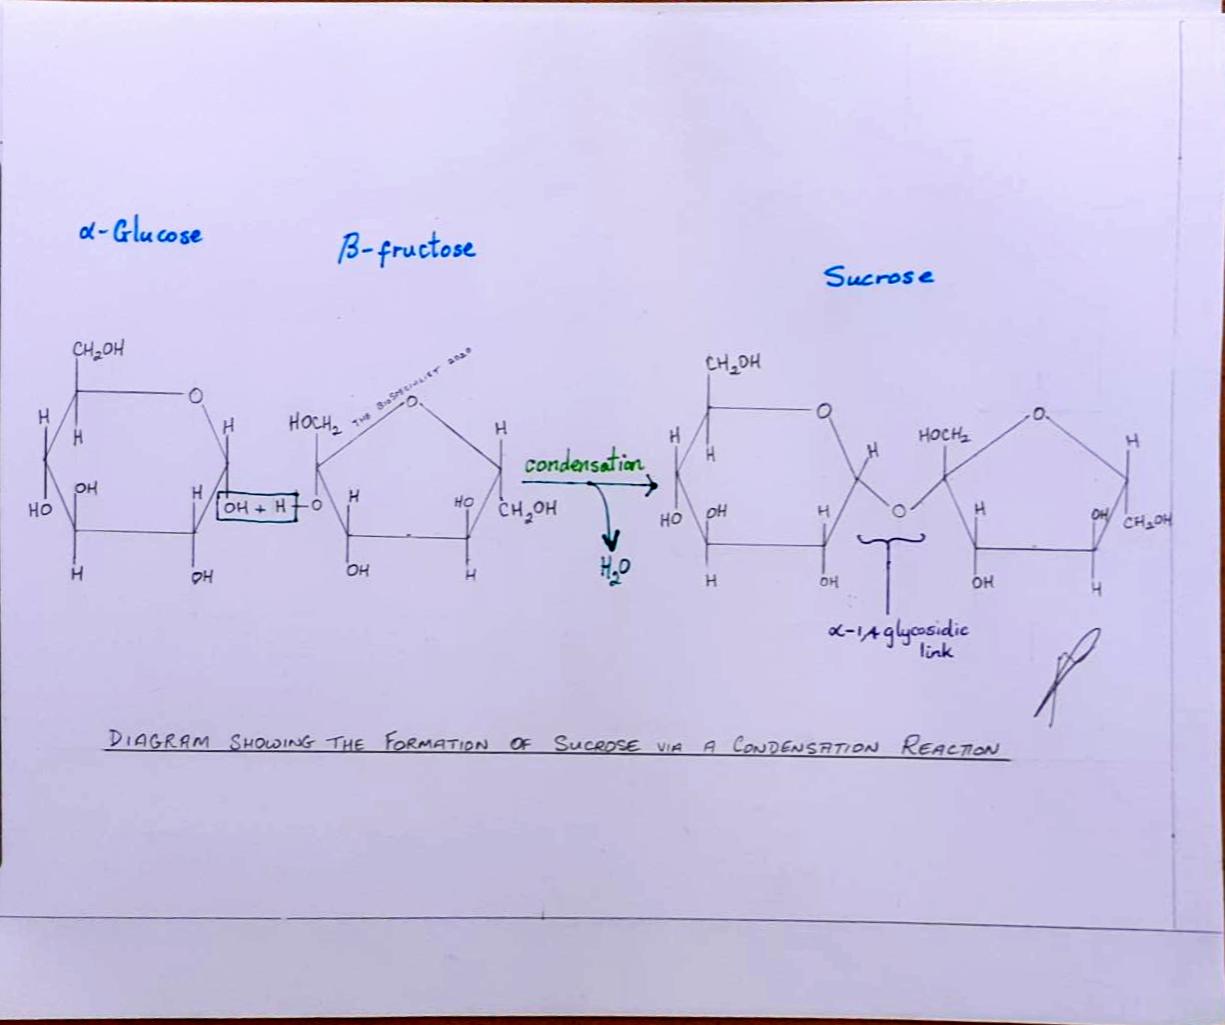 α-Glucose
β-fructose
Sucrose
CH₂OH
O
H
H
H
HO
OH
H
H
OH
OH + H
O
HOCH₂
THE BIOSPECIALIST 2020
O
H
H
HO
CH₂OH
OH
H
condensation
H₂O
CH₂OH
O
H
H
H
HO
OH
H
H
OH
O
HOCH₂
O
H
H
OH
CH₂OH
OH
H
α-1,4 glycosidic
link
DIAGRAM SHOWING THE FORMATION OF SUCROSE VIA A CONDENSATION REACTION